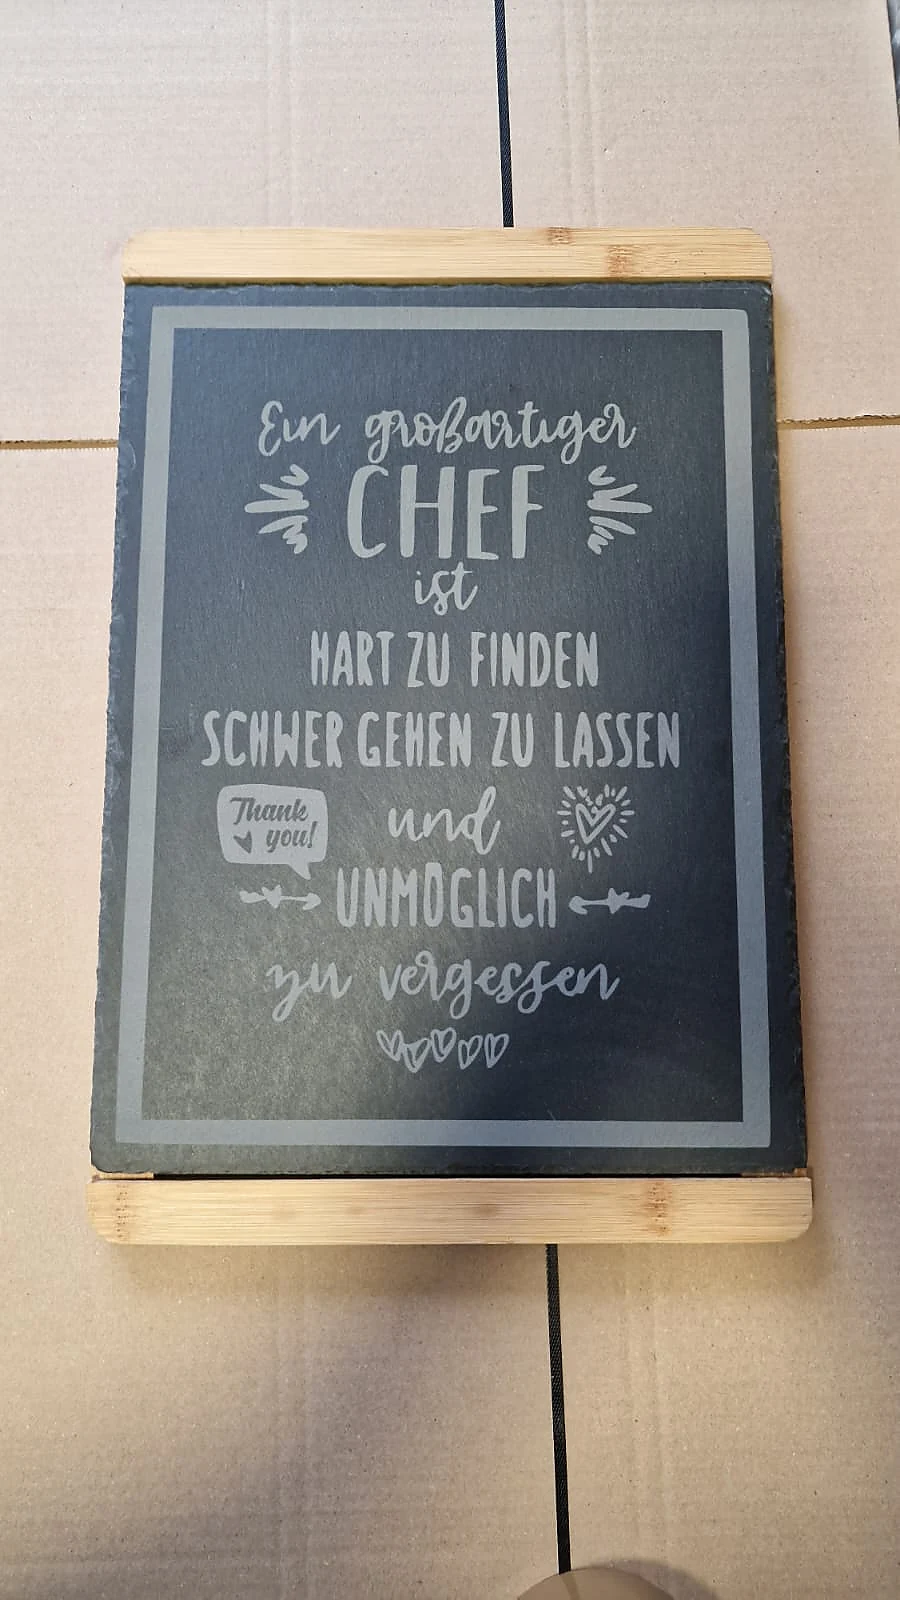 Ein großartiger
CHEF
ist
HART ZU FINDEN
SCHWER GEHEN ZU LASSEN
Thank
you!
und
UNMÖGLICH
zu vergessen